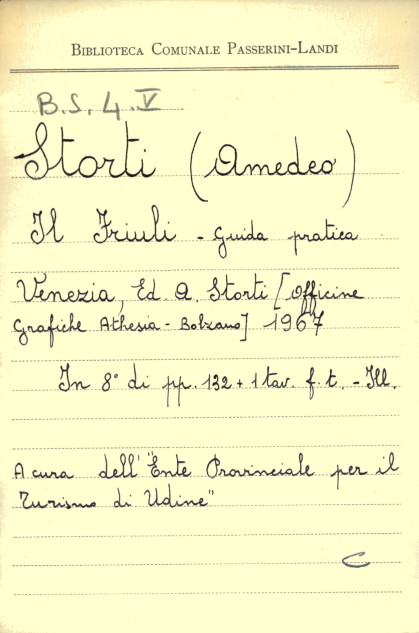 BIBLIOTECA COMUNALE PASSERINI-LANDI
B.S. 4. V
Storti (Amedeo)
Il Friuli - Guida pratica
Venezia, Ed. A. Storti [Officine
Grafiche Athesia - Bolzano] 1967
In 8° di pp. 132 + 1 tav. f. t. - Ill.
A cura dell' "Ente Provinciale per il
Turismo di Udine"
C